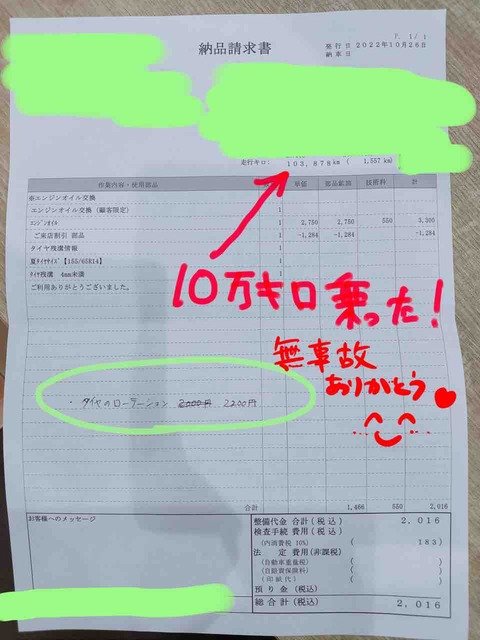 P. 1/ 1
納品請求書
発行日 2022年10月26日
納車日
走行キロ: 103,878km ( 1,567 km)
作業内容・使用部品 単価 部品総額 技術料 計
※エンジンオイル交換 1
エンジンオイル交換 (顧客限定) 1
エンジンオイル 1 2,750 2,750 550 3,300
ご来店割引 部品 1 -1,284 -1,284 -1,284
タイヤ残溝情報 1
夏タイヤサイズ【155/65R14】 1
タイヤ残溝 4mm未満 1
ご利用ありがとうございました。
10万キロ乗った!
無事故
ありがとう
・タイヤのローテーション 2000円 2200円
合計 1,466 550 2,016
お客様へのメッセージ
整備代金 合計(税込) 2,016
検査手続 費用(税込)
(内消費税 10%) ( 183)
法 定 費用(非課税)
(自動車重量税) ( )
(自賠責保険料) ( )
(印 紙 代) ( )
預り 金 (税込)
総 合 計 (税込) 2,016